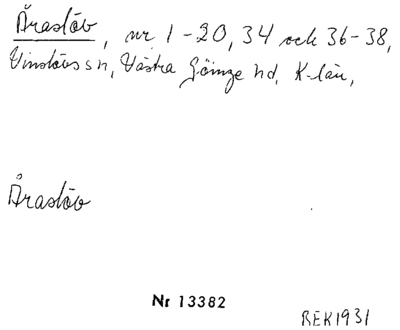 Årastöv, nr 1-20, 34 och 36-38,
Vinslövs sn, Västra Göinge hd, K-län,
Årastöv
Nr 13382
BEK1931